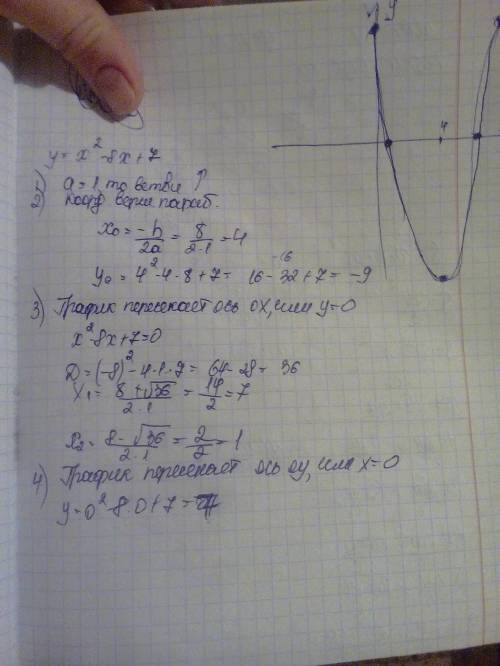 y
4
y = x² - 8x + 7
1) a = 1, то ветви ↑
2) коорд верш параб.
x₀ = -b/2a = 8/2·1 = 4
-16
y₀ = 4² - 4·8 + 7 = 16 - 32 + 7 = -9
3) График пересекает ось ОХ, или y=0
x² - 8x + 7 = 0
D = (-8)² - 4·1·7 = 64 - 28 = 36
x₁ = 8+√36/2·1 = 14/2 = 7
x₂ = 8-√36/2·1 = 2/2 = 1
4) График пересекает ось оу, или x=0
y = 0² - 8·0 + 7 = 7